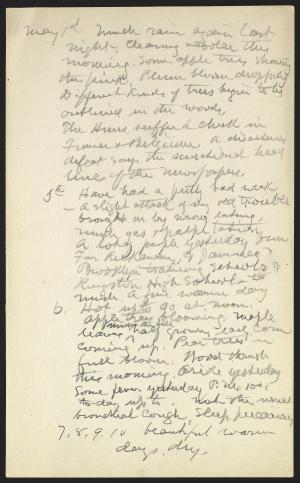 May 1st. Much rain again last
night, clearing & cooler this
morning. Some apple trees showing
the pink, Plum bloom dropping
Different kinds of trees begin to be
outlined in the woods.
The Huns suffer a check in
France & Belgium. A disastrous
defeat says the sensational head
line of the newspapers.
5th Have had a pretty bad week
– A slight attack of my old trouble
brought on by wrong eating,
much gas &
A lot of people yesterday from
Brooklyn training schools
Kingston High Schools to
much. A fine warm day
6. Hot up to 90 at noon.
Apple trees blooming, maple
leaves half grown, early corn
coming up. Pear trees in
full bloom. Wood thrush
this morning. A ride yesterday
Some fever yesterday P.M. 100
to-day up to. not the usual
bronchial cough. Sleep precarious
7, 8, 9, 10 beautiful warm
days, dry.